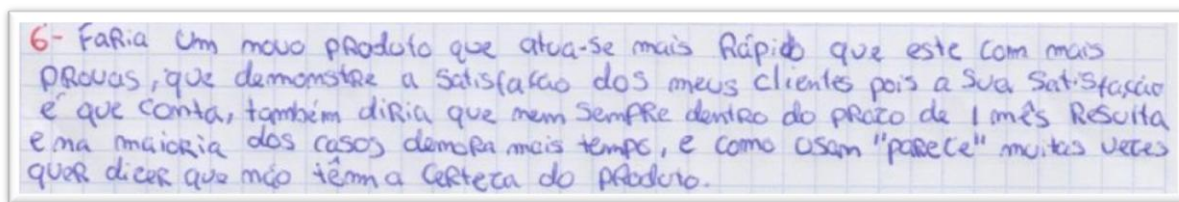 6- Faria um novo produto que atua-se mais Rápido que este com mais
provas, que demonstre a satisfacão dos meus clientes pois a Sua Satisfação
é que conta, também diria que nem sempre dentro do prazo de 1 mês Resulta
e na maioria dos casos demora mais tempo, e como usam "parece" muitas vezes
quer dizer que não têm a certeza do produto.